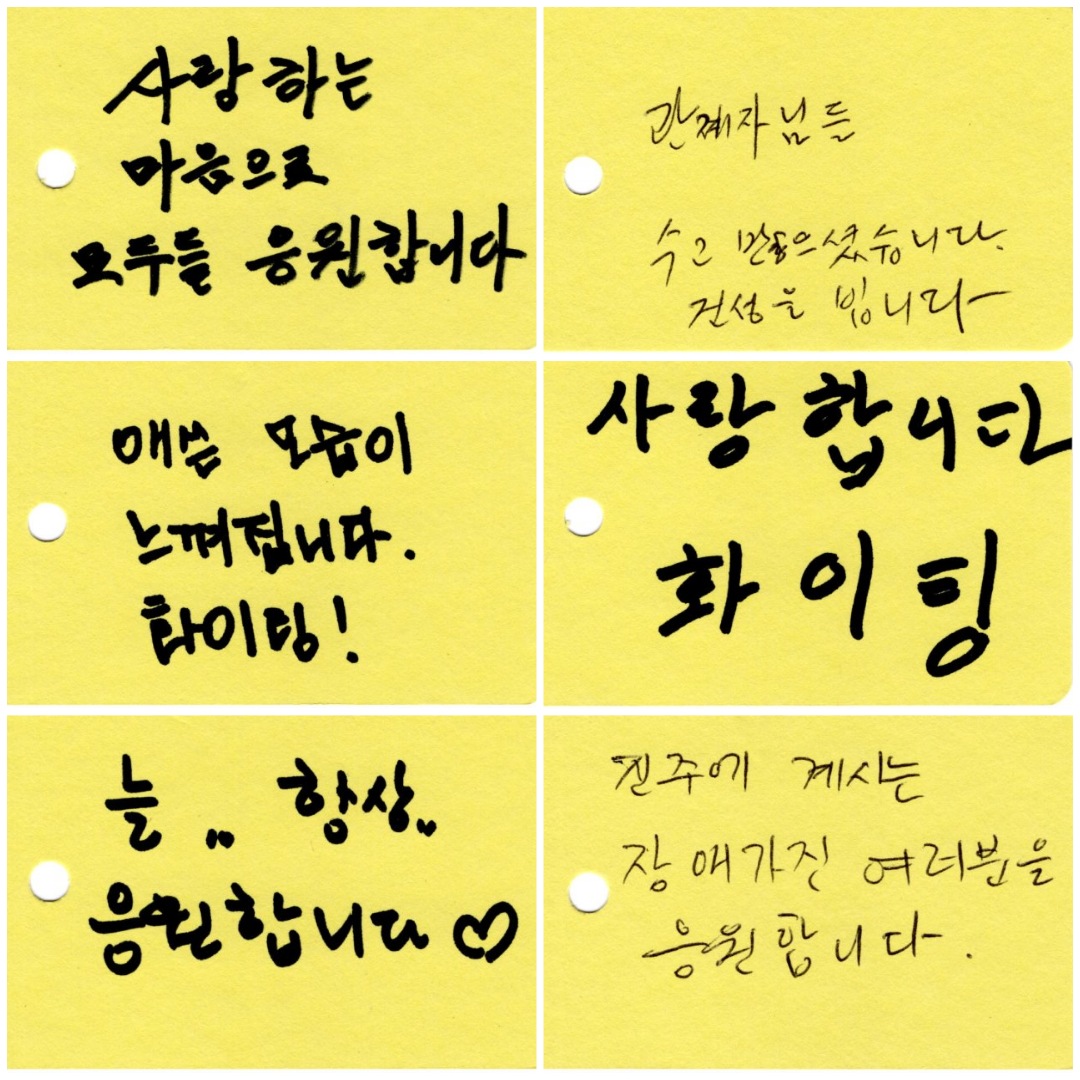 사랑하는
마음으로
모두들 응원합니다
관계자님들
수고 많으셨습니다.
건성을 빕니다
애쓴 모습이
느껴집니다.
화이팅!
사랑합니다
화이팅
늘 .. 항상..
응원합니다♡
진주에 계시는
장애가진 여러분을
응원합니다.